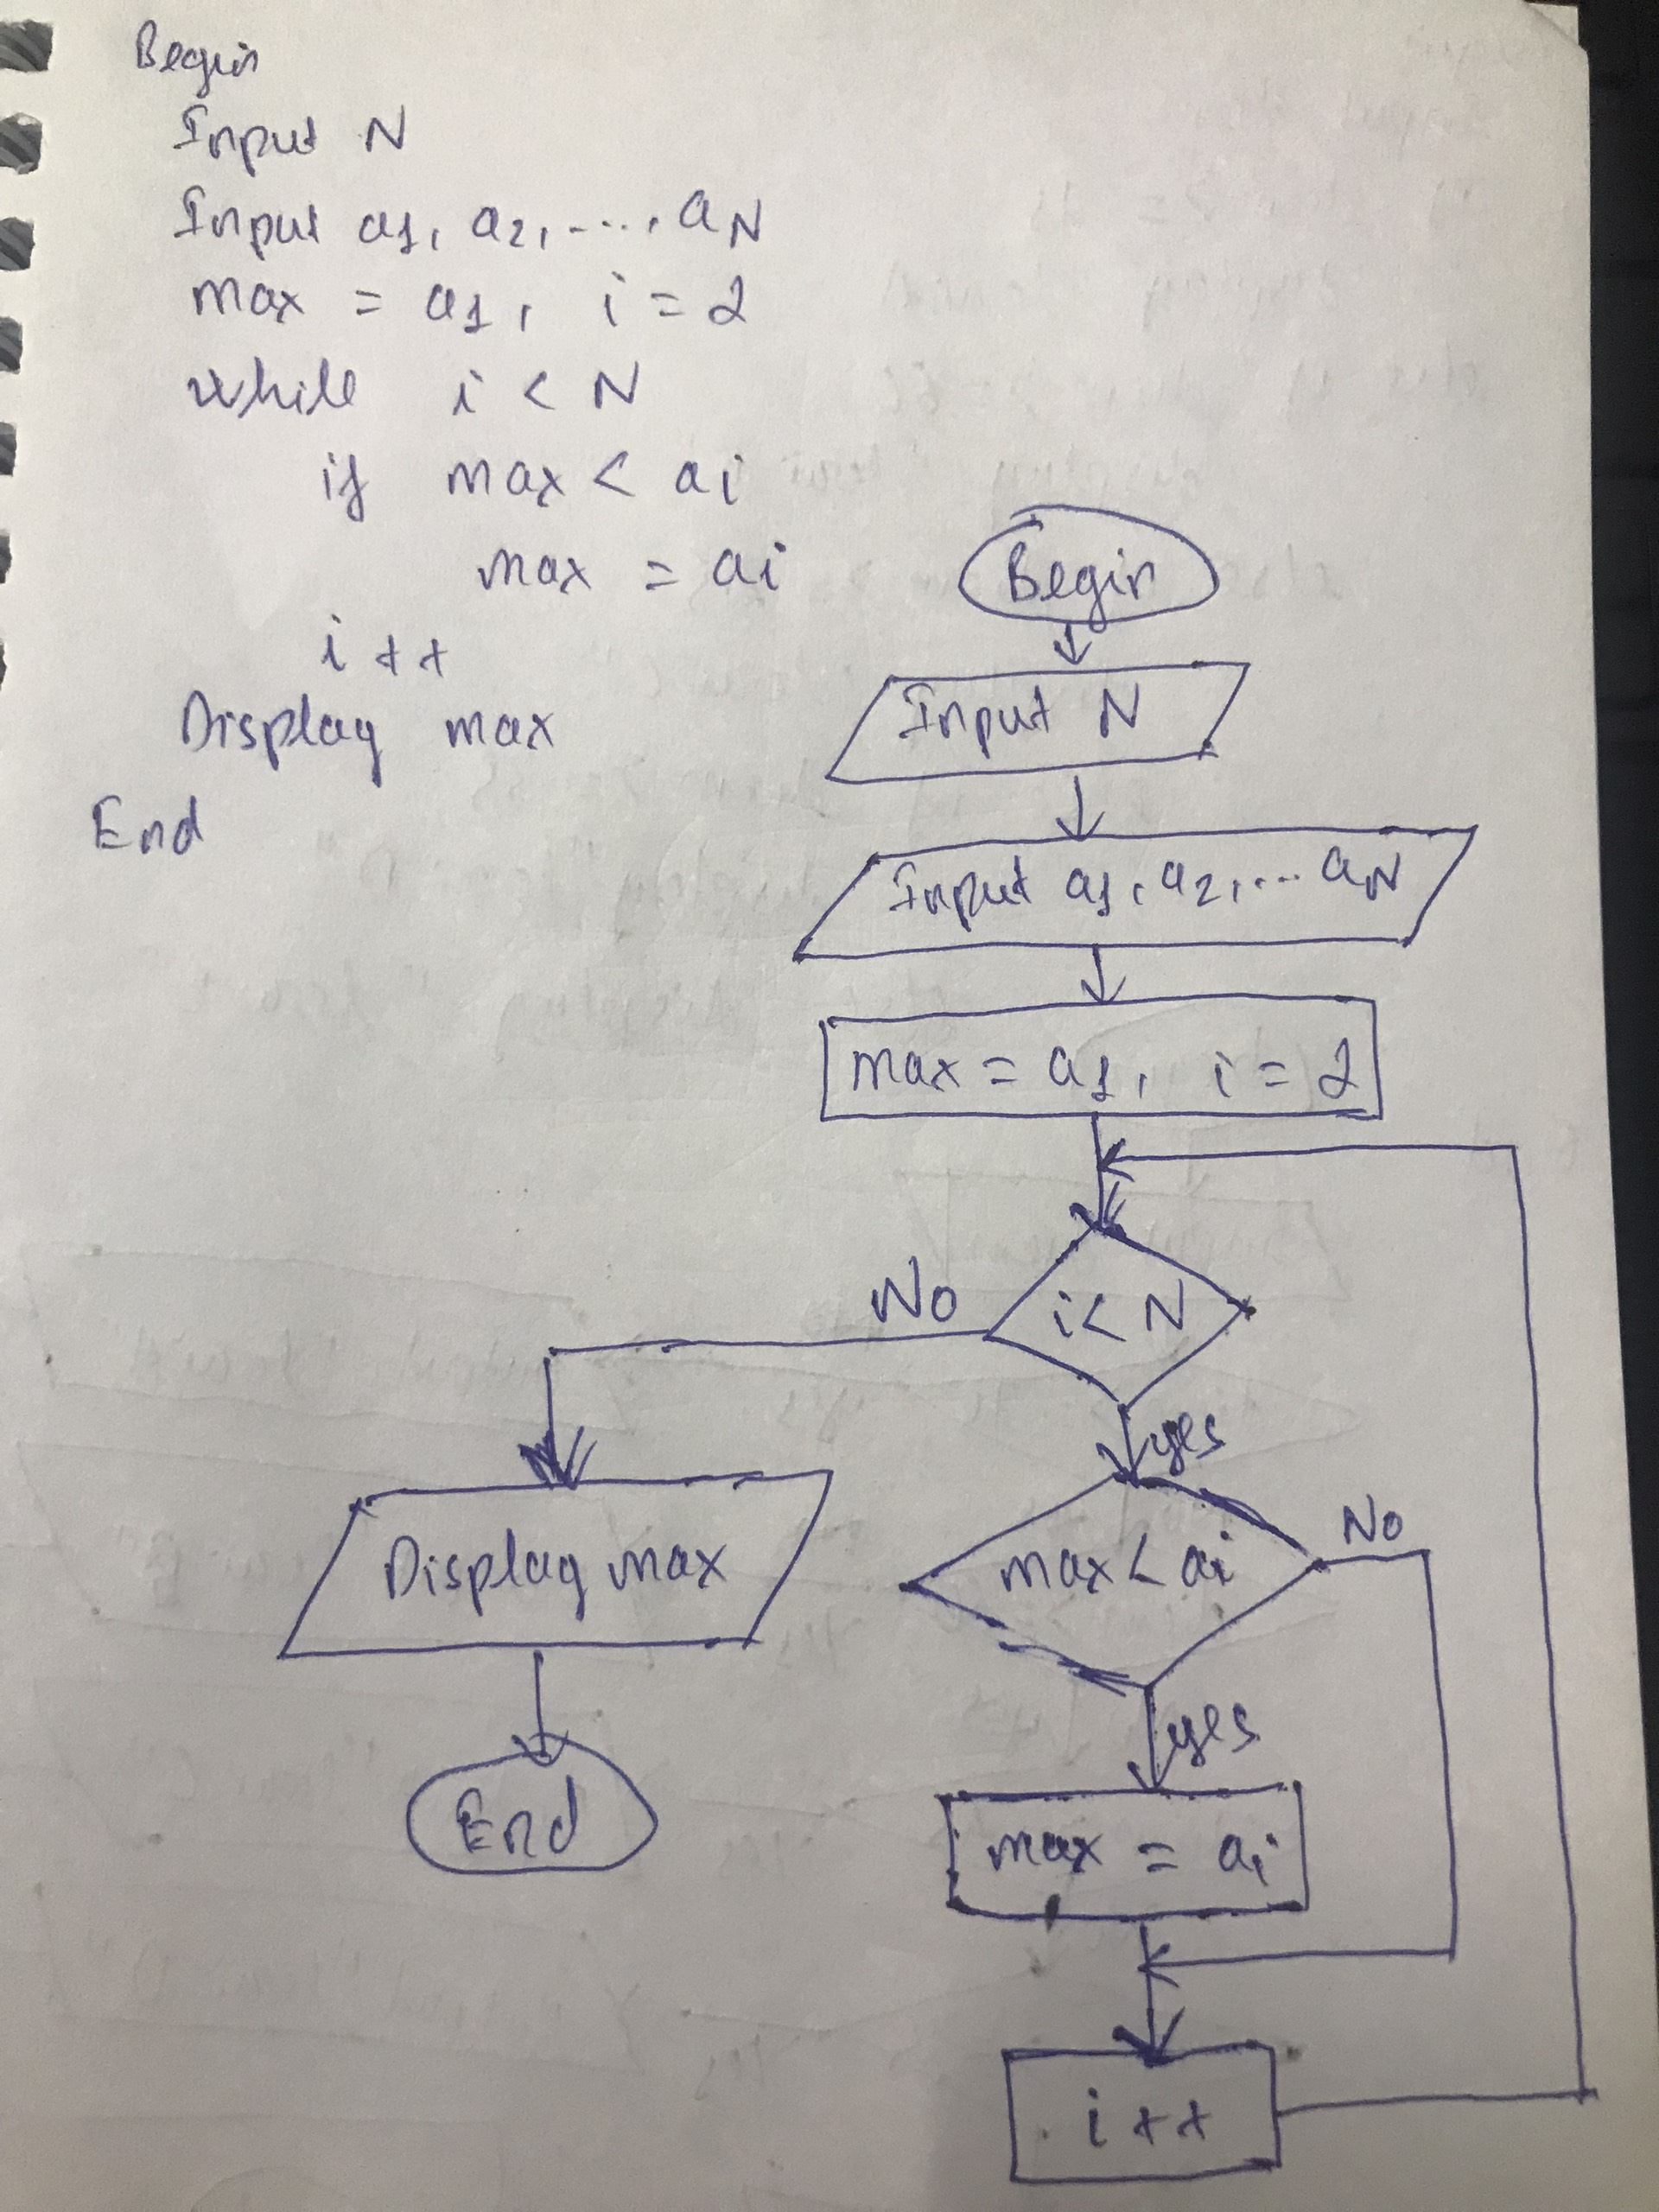 Begin
Input N
Input a1, a2, ...., aN
max = a1, i = 2
while i < N
if max < ai
max = ai
i ++
Display max
End
Begin
Input N
Input a1, a2, ... aN
max = a1, i = 2
i < N
No
yes
max < ai
No
yes
max = ai
i ++
Display max
End